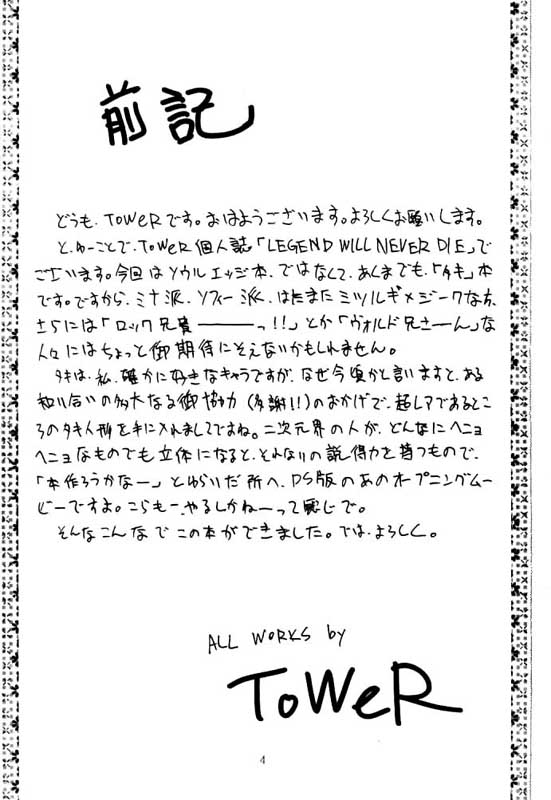 前記
どうも、ToWeRです。おはようございます。よろしくお願いします。
と、ゆーことで、ToWeR個人誌「LEGEND WILL NEVER DIE」で
ございます。今回はソウルエッジ本、ではなくて、あくまでも、「タキ」本
です。ですから、ミナ派、ソフィー派、はたまたミツルギ×ジークな方、
さらには「ロック兄貴―――っ!!」とか「ヴォルド兄さーん」な
人々にはちょっと御期待にそえないかもしれません。
タキは、私、確かに好きなキャラですが、なぜ今頃かと言いますと、ある
知り合いの多大なる御協力(多謝!!)のおかげで、超レアであるところ
のタキ人形を手に入れましてですね。二次元界の人が、どんなにヘニョ
ヘニョなものでも立体になると、それなりの説得力を持つもので、
「本作ろうかなー」とゆらいだ所へ、PS版のあのオープニングムー
ビーですよ。こらもー、やるしかねーって感じで。
そんなこんなでこの本ができました。では、よろしく。
ALL WORKS by
ToWeR
4